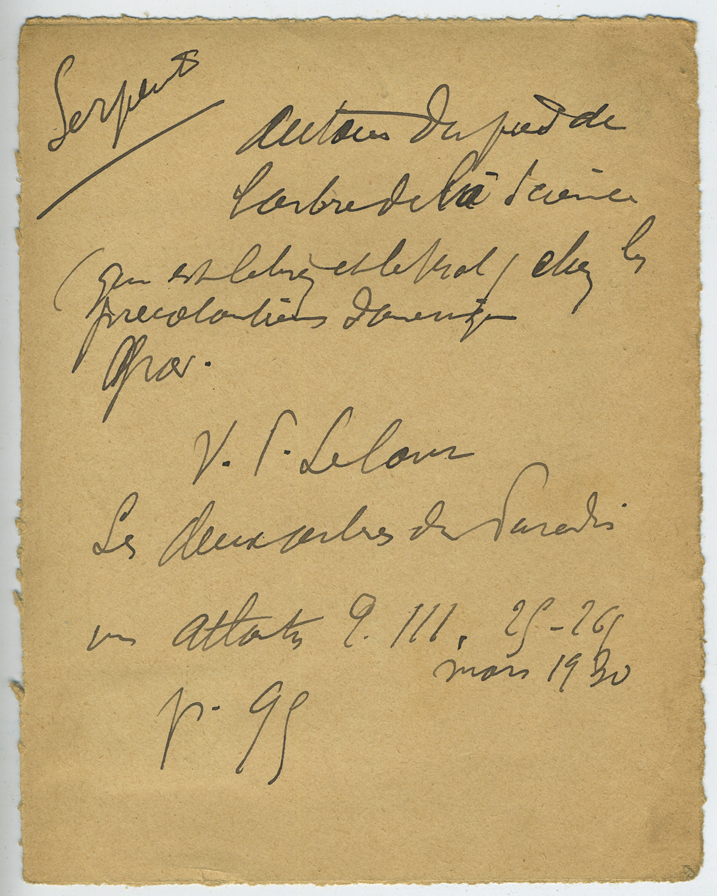 Serpent
autour du pied de
l'arbre de la Science
(qui est le bien et le mal) chez les
precolombiens d'amerique
V. P. Lelour
Les deux arbres du Paradis
in Atlantis 9. III. 25-26
mars 1930
p. 95